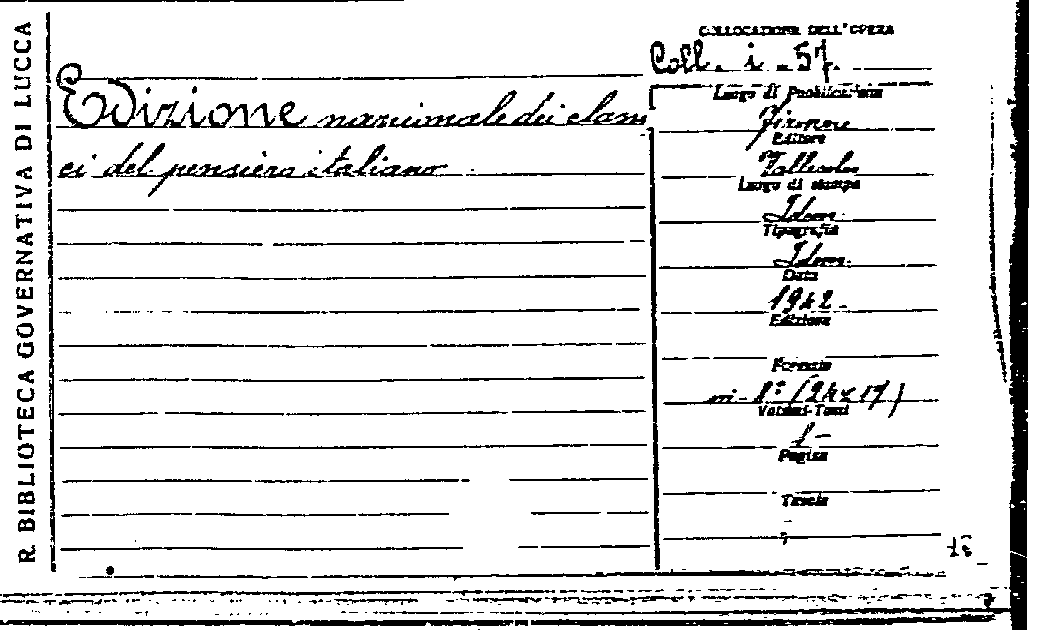 R. BIBLIOTECA GOVERNATIVA DI LUCCA
COLLOCAZIONE DELL'OPERA
Coll. i - 57.
Edizione nazionale dei classi
ci del pensiero italiano
Luogo di Pubblicazione
Firenze
Editore
Vallecchi
Luogo di stampa
Idem
Tipografia
Idem.
Data
1942 -
Edizione
Formato
in-8° (24x17)
Volumi-Tomi
1 -
Pagine
Tavole